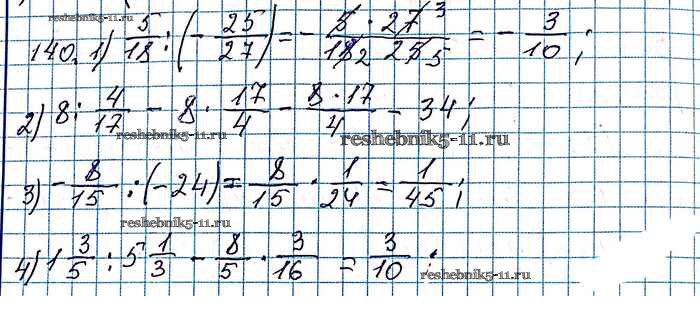 reshebnik5-11.ru
140. 1) 5/18 : (- 25/27) = - 5 · 27 3 / 18 2 25 5 = - 3/10 ;
2) 8 : 4/17 - 8 · 17/4 - 8·17/4 - 34 ;
reshebnik5-11.ru reshebnik5-11.ru
3) - 8/15 : (-24) = 8/15 · 1/24 = 1/45 ;
reshebnik5-11.ru
4) 1 3/5 : 5 1/3 - 8/5 · 3/16 = 3/10 ;
reshebnik5-11.ru reshebnik5-11.ru